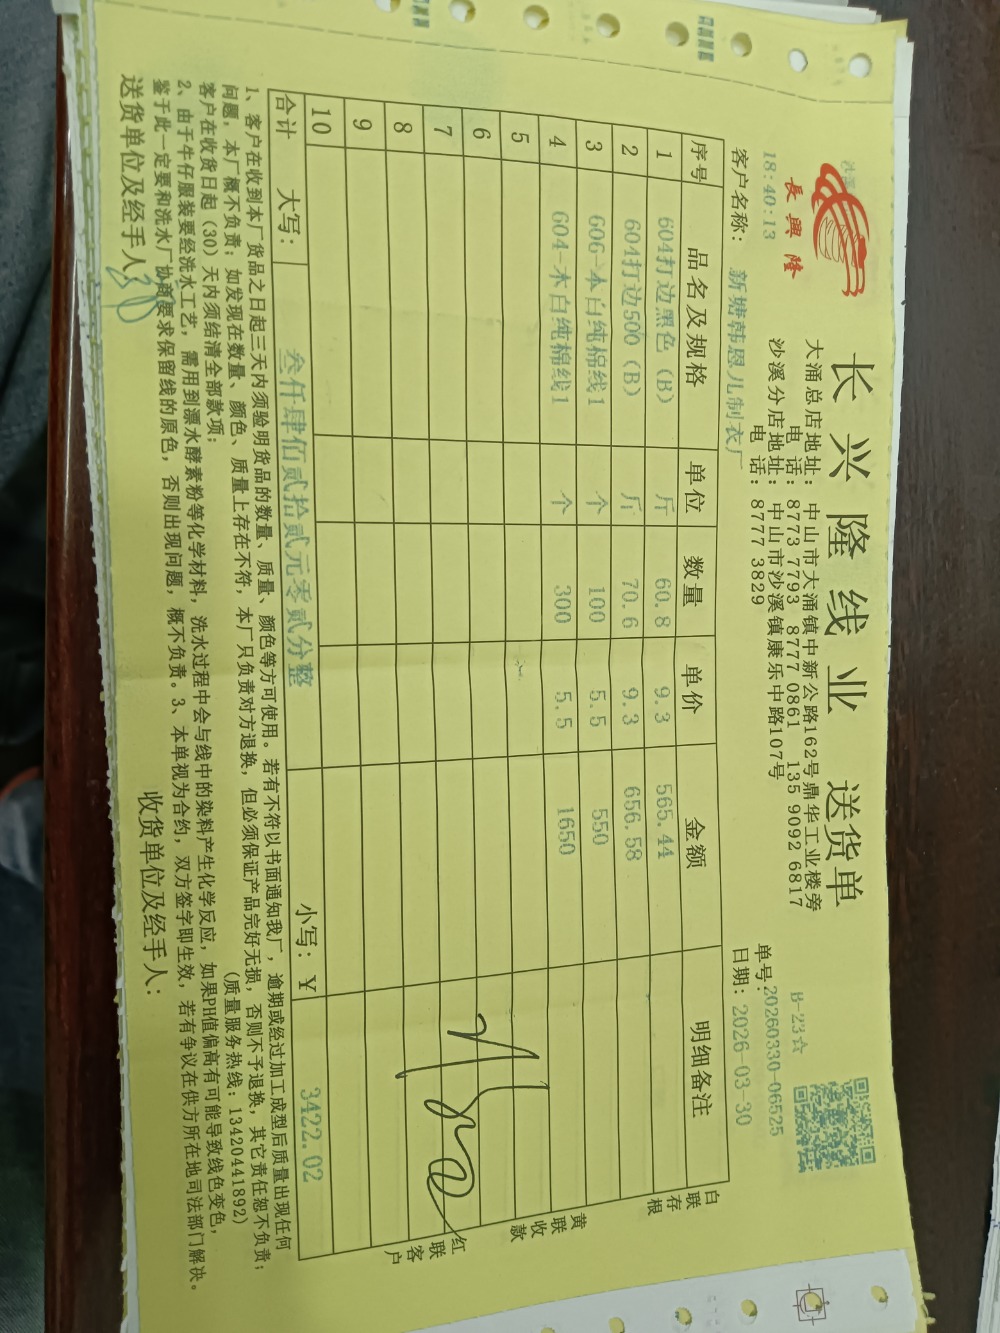 長興隆
长兴隆线业 送货单
大涌总店地址: 中山市大涌镇中新公路162号鼎华工业楼旁
电 话: 8773 7793 8777 0861 135 9092 6817
沙溪分店地址: 中山市沙溪镇康乐中路107号
电 话: 8777 3829
B-23☆
18:40:13
单号: 20260330-06525
客户名称: 新塘韩恩儿制衣厂
日期: 2026-03-30
序号 品名及规格 单位 数量 单价 金额 明细备注
1 604打边黑色 (B) 斤 60.8 9.3 565.44
2 604打边500 (B) 斤 70.6 9.3 656.58
3 606-本白纯棉线1 个 100 5.5 550
4 604-本白纯棉线1 个 300 5.5 1650
5
6
7
8
9
10
合计 大写: 叁仟肆佰贰拾贰元零贰分整 小写: ￥ 3422.02
白联存根
黄联收款
红联客户
1、客户在收到本厂货品之日起三天内须验明货品的数量、质量、颜色等方可使用。若有不符以书面通知我厂，逾期或经过加工成型后质量出现任何
问题，本厂概不负责；如发现在数量、颜色、质量上存在不符，本厂只负责对方退换，但必须保证产品完好无损，否则不予退换，其它责任恕不负责；
客户在收货日起（30）天内须结清全部款项； （质量服务热线: 13420441892）
2、由于牛仔服装要经洗水工艺，需用到漂水酵素粉等化学材料，洗水过程中会与线中的染料产生化学反应，如果PH值偏高有可能导致线色变色，
鉴于此一定要和洗水厂协商要求保留线的原色，否则出现问题，概不负责。3、本单视为合约，双方签字即生效，若有争议在供方所在地司法部门解决。
送货单位及经手人: 收货单位及经手人: